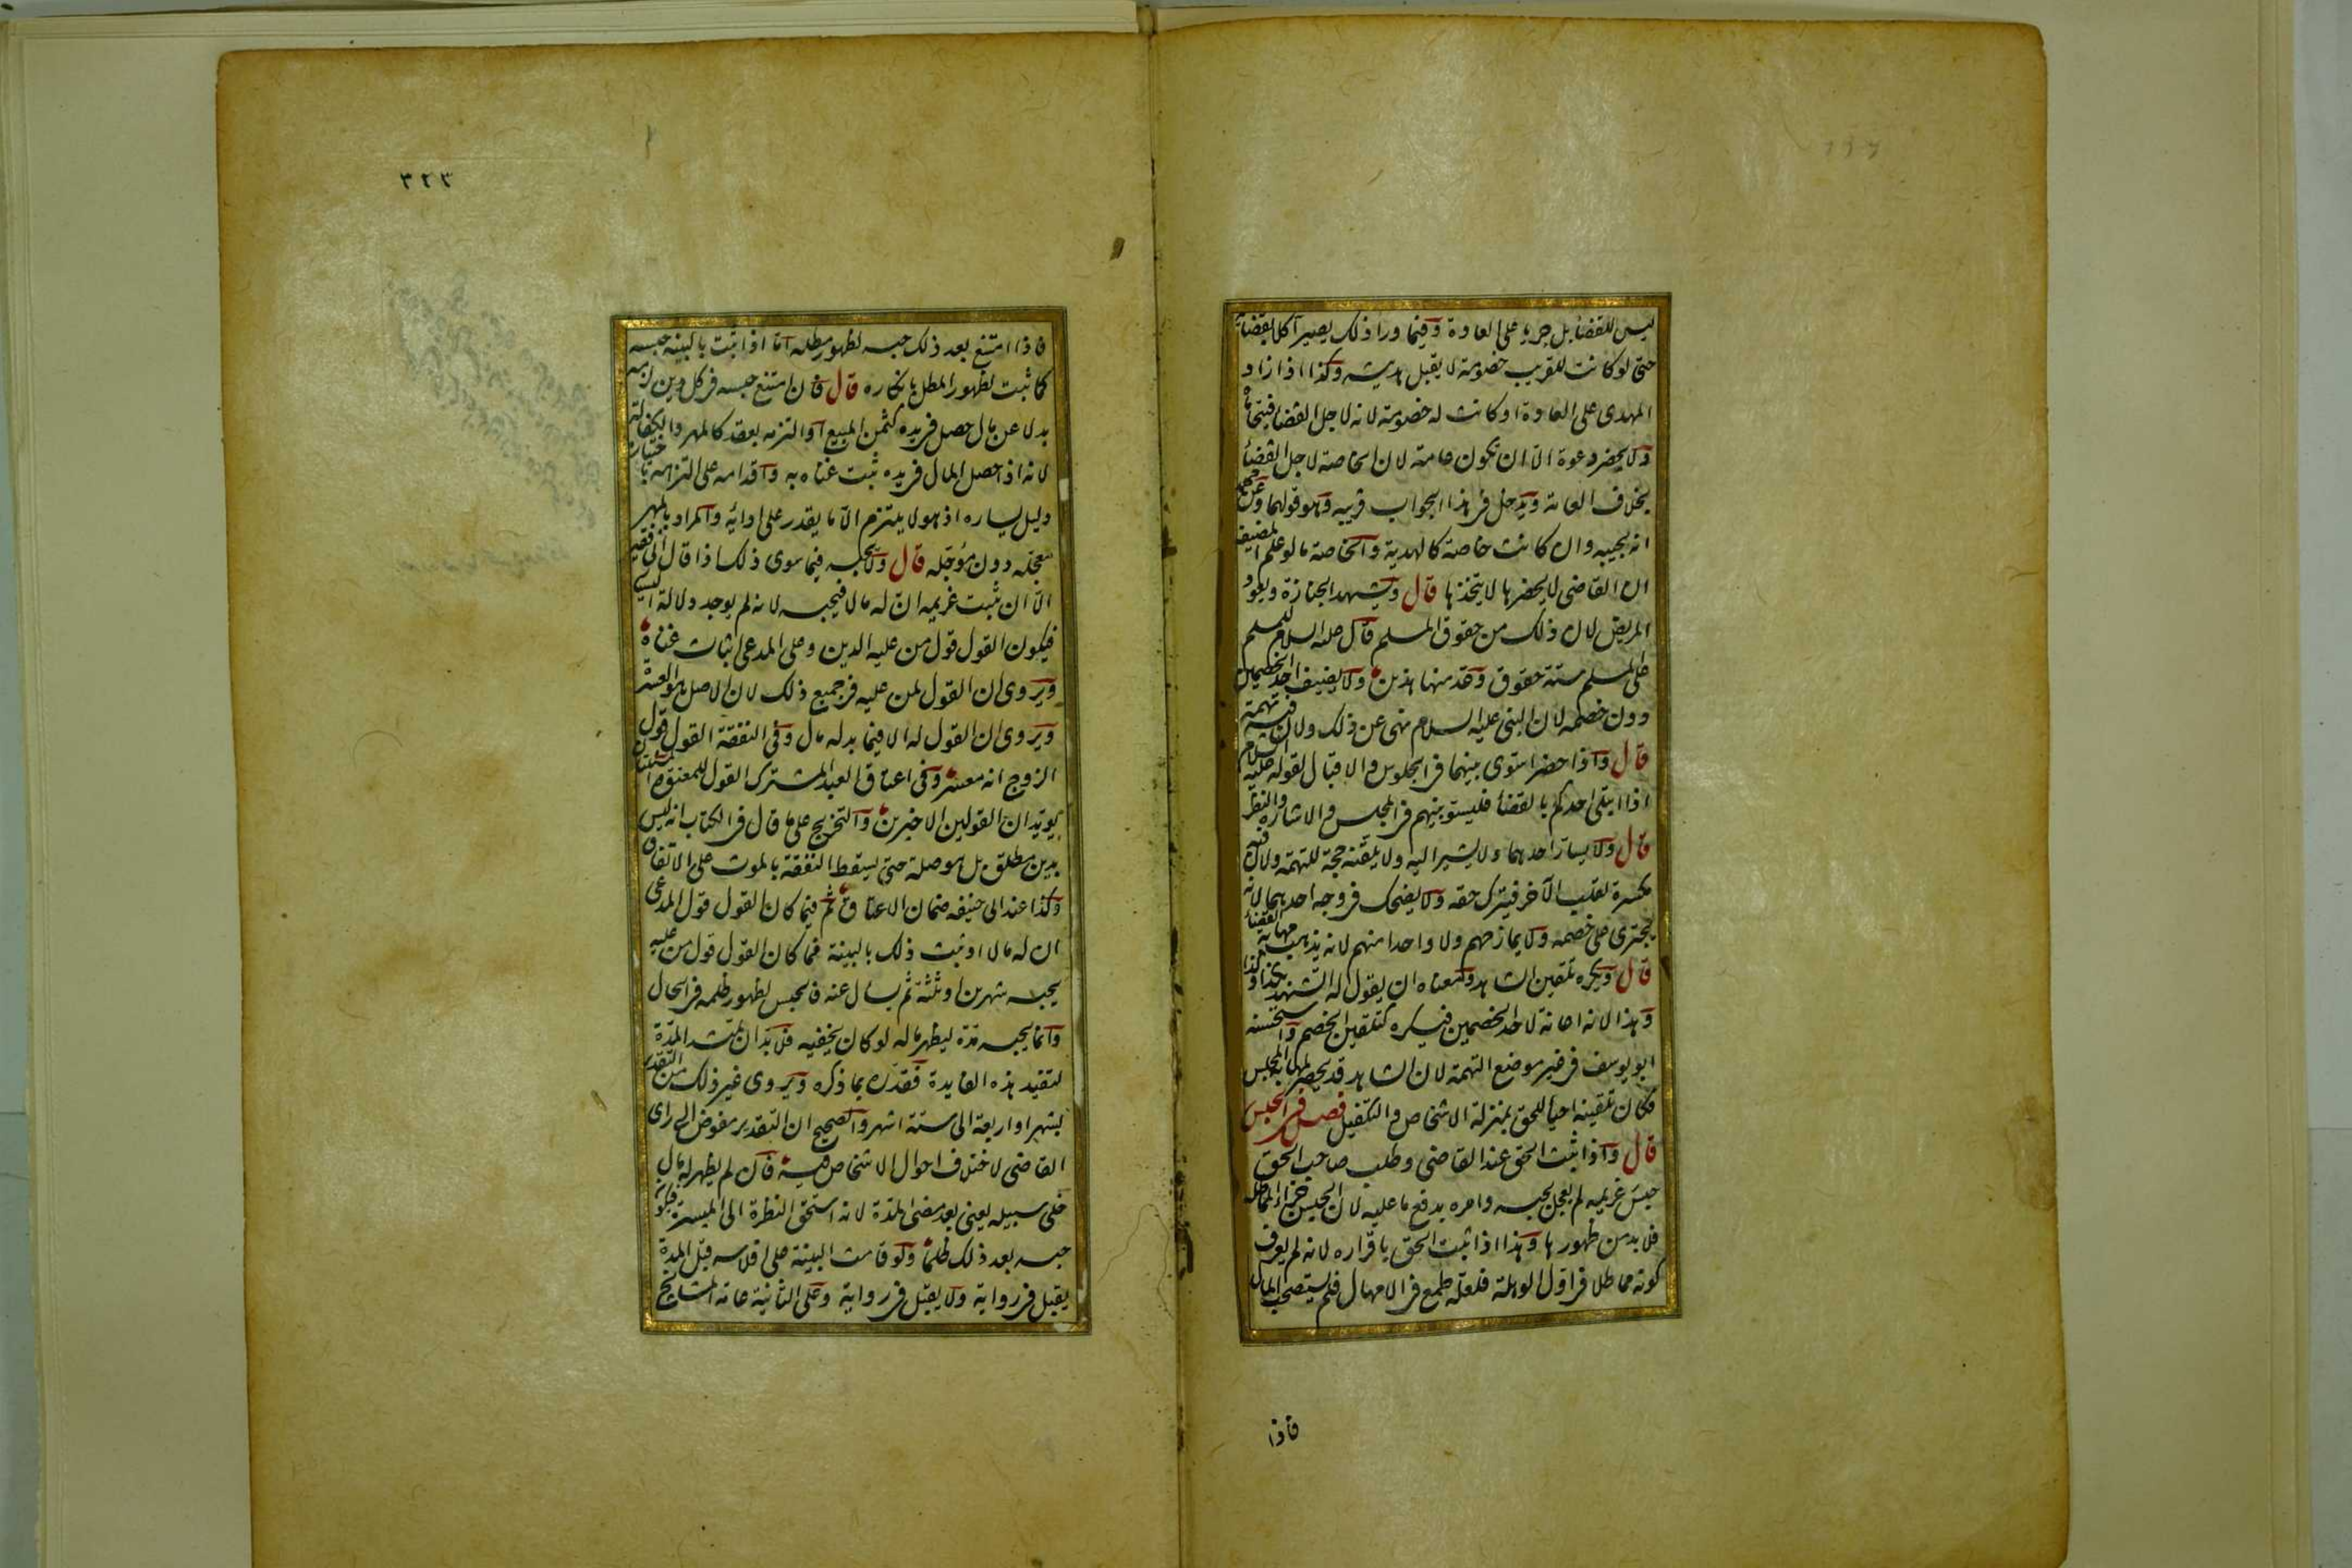 ليس للقضا بل جريا على العادة وفيما وراء ذلك يصير آكلا بقضائه
حتى لو كانت للقريب خصومة لا يقبل هديته وكذا اذا زاد
المهدى على العادة او كانت له خصومة لانه لاجل القضا فيتحاماه
ولا يحضر دعوة الا ان تكون عامة لان الخاصة لاجل القضا
بخلاف العامة ويدخل فى هذا الجواب قريبه وهو قولهما وعن محمد
انه يجيبه وان كانت خاصة كالهدية والخاصة ما لو علم المضيف
ان القاضى لا يحضرها لا يتخذها قال ويشهد الجنازة ويعود
المريض لان ذلك من حقوق المسلم قال عليه السلام للمسلم
على المسلم ستة حقوق وعد منها هذين ولا يضيف احد الخصمين
دون خصمه لان النبى عليه السلام نهى عن ذلك ولان فيه تهمة
قال واذا حضرا سوى بينهما فى الجلوس والاقبال لقوله عليه السلام
اذا ابتلى احدكم بالقضا فليسو بينهم فى المجلس والاشارة والنظر
قال ولا يسار احدهما ولا يشير اليه ولا يلقنه حجة للتهمة ولان فيه
مكسرة لقلب الآخر فيترك حقه ولا يضحك فى وجه احدهما لانه
يجترى على خصمه ولا يمازحهم ولا واحدا منهم لانه يذهب بمهابة القضا
قال ويكره تلقين الشاهد ومعناه ان يقول له اتشهد بكذا وكذا
وهذا لانه اعانة لاحد الخصمين فيكره كتلقين الخصم واستحسنه
ابو يوسف فى غير موضع التهمة لان الشاهد قد يحصر لمهابة المجلس
فكان تلقينه احيا للحق بمنزلة الاشخاص والتكفيل فصل فى الحبس
قال واذا ثبت الحق عند القاضى وطلب صاحب الحق
حبس غريمه لم يعجل بحبسه وامره بدفع ما عليه لان الحبس جزاء المماطلة
فلا بد من ظهورها وهذا اذا ثبت الحق باقراره لانه لم يعرف
كونه مماطلا فى اول الوهلة فلعله طمع فى الامهال فلم يستصحب المال
فاذا
٣٢٣
فاذا امتنع بعد ذلك حبسه لظهور مطله اما اذا ثبت بالبينة حبسه
كما ثبت لظهور المطل بانكاره قال فان امتنع حبسه فى كل دين لزمه
بدلا عن مال حصل فى يده كثمن المبيع او التزمه بعقد كالمهر والكفالة
لانه اذا حصل المال فى يده ثبت غناه به واقدامه على التزامه باختياره
دليل يساره اذ هو لا يلتزم الا ما يقدر على ادائه والمراد بالمهر
معجله دون مؤجله قال ولا يحبسه فيما سوى ذلك اذا قال انى فقير
الا ان يثبت غريمه ان له مالا فيحبسه لانه لم يوجد دلالة اليسار
فيكون القول قول من عليه الدين وعلى المدعى اثبات غناه
ويروى ان القول لمن عليه فى جميع ذلك لان الاصل هو العسرة
ويروى ان القول له الا فيما بدله مال وفى النفقة القول قول
الزوج انه معسر وفى اعتاق العبد المشترك القول للمعتق والمسئلتان
يويدان القولين الاخيرين والتخريج على ما قال فى الكتاب انه ليس
بدين مطلق بل هو صلة حتى يسقط النفقة بالموت على الاتفاق
وكذا عند ابى حنيفه ضمان الاعتاق ثم فيما كان القول قول المدعى
ان له مالا او ثبت ذلك بالبينة فيما كان القول قول من عليه
يحبسه شهرين او ثلثة ثم يسال عنه فالحبس لظهور ظلمه فى الحال
وانما يحبسه مدة ليظهر ماله لو كان يخفيه فلا بد ان تمتد المدة
لتفيد هذه الفايدة فقدره بما ذكره ويروى غير ذلك من التقدير
بشهر او اربعة الى ستة اشهر والصحيح ان التقدير مفوض الى راى
القاضى لاختلاف احوال الاشخاص فيه فان لم يظهر له مال
خلى سبيله يعنى بعد مضى المدة لانه استحق النظرة الى الميسرة فيكون
حبسه بعد ذلك ظلما ولو قامت البينة على افلاسه قبل المدة
يقبل فى رواية ولا يقبل فى رواية وعلى الثانية عامة المشايخ